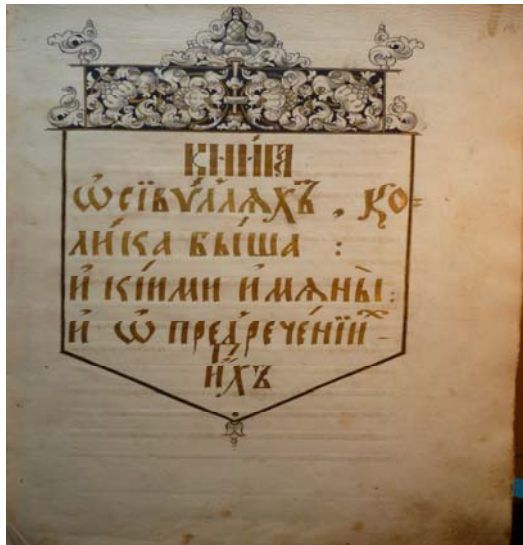 КНИ́ГА
Ѡ҆ СІВѴ́ЛЛѦХЪ , КО=
ЛИ́КА БЫ́ША :
И҆ КІ́ИМИ И҆МѦНЫ̀ :
И҆ Ѡ҆ ПРЕДРЕЧЕ́НЇИХ
И҆́ХЪ